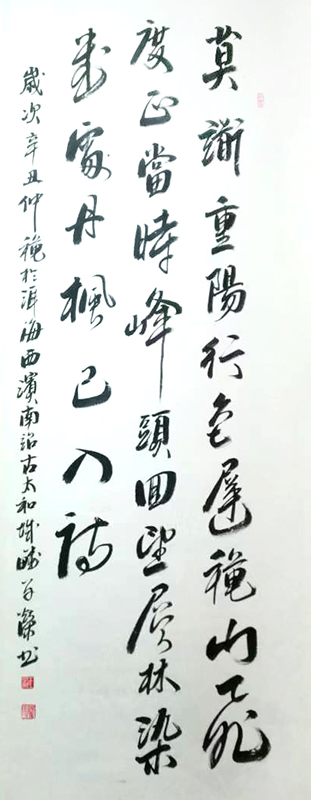 莫謝重陽行色遲穐山飛
度正當時峰頭回望層林染
幾處丹楓已入詩
歲次辛丑仲穐於洱海西濱南詔古太和城畔書